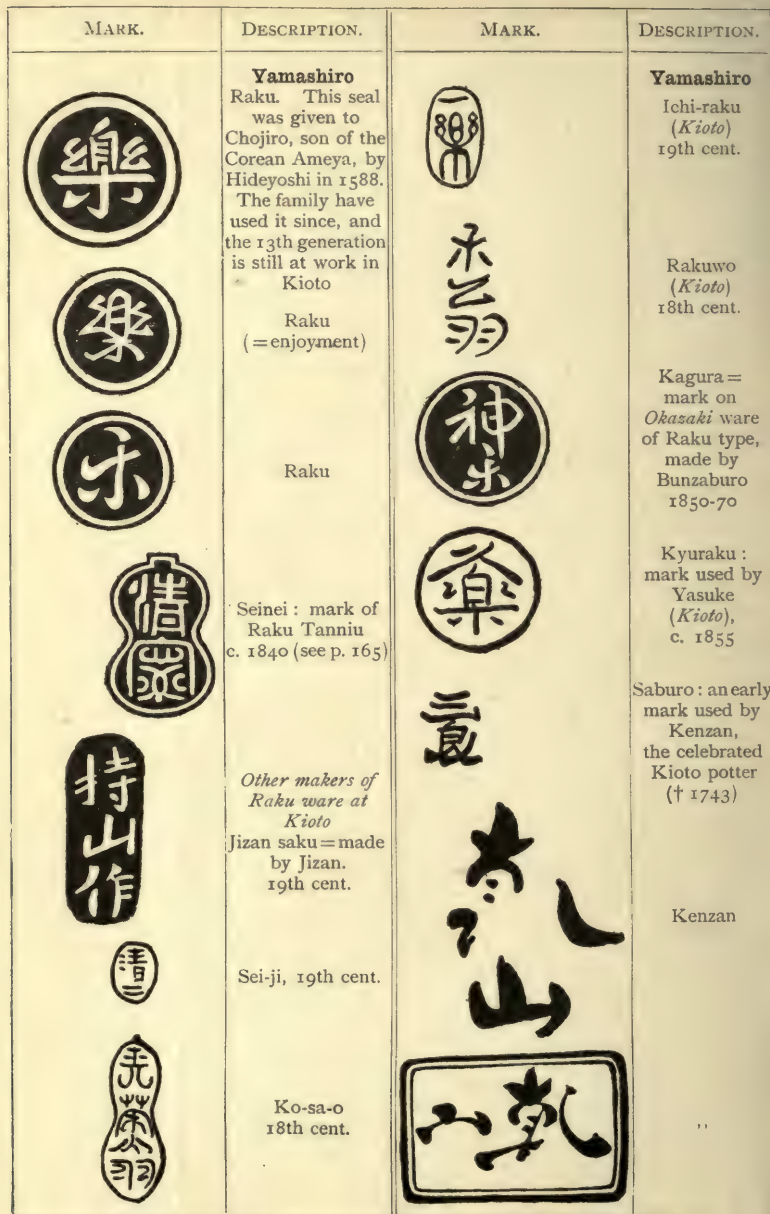 MARK.
DESCRIPTION.
Yamashiro
樂
Raku. This seal
was given to
Chojiro, son of the
Corean Ameya, by
Hideyoshi in 1588.
The family have
used it since, and
the 13th generation
is still at work in
Kioto
Raku
(=enjoyment)
Raku
Seinei : mark of
Raku Tanniu
c. 1840 (see p. 165)
持
山
作
Other makers of
Raku ware at
Kioto
Jizan saku=made
by Jizan.
19th cent.
清
二
Sei-ji, 19th cent.
Ko-sa-o
18th cent.
MARK.
DESCRIPTION.
Yamashiro
一
樂
Ichi-raku
(Kioto)
19th cent.
翁
Rakuwo
(Kioto)
18th cent.
神
Kagura=
mark on
Okazaki ware
of Raku type,
made by
Bunzaburo
1850-70
Kyuraku :
mark used by
Yasuke
(Kioto),
c. 1855
Saburo : an early
mark used by
Kenzan,
the celebrated
Kioto potter
(† 1743)
乾
山
Kenzan
山乾
,,